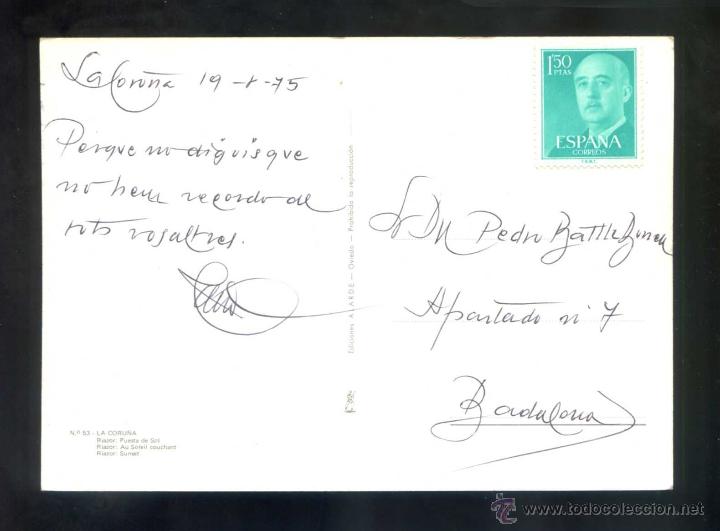 La Coruña 19-8-75
Perque no diguis que
no hem recordo de
tots vosaltres.
1'50
PTAS
ESPAÑA
CORREOS
F.N.M.T.
Sr. Dn Pedro Batlle
Apartado nº 7
Badalona
Ediciones ALARDE — Oviedo — Prohibida la reproducción
N.º 53 - LA CORUÑA
Riazor: Puesta de Sol
Riazor: Au Soleil couchant
Riazor: Sunset
www.todocoleccion.net